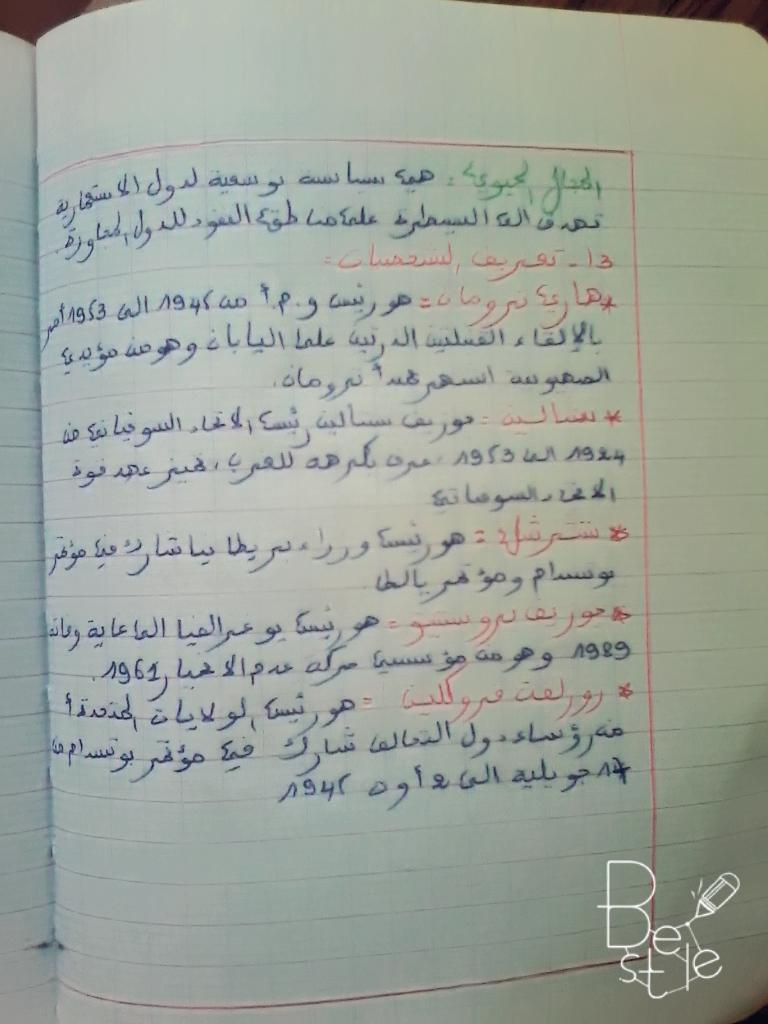 المجال الحيوي : هي سياسة توسعية لدول الاستعمارية
تهدف الى السيطرة على مناطق النفود للدول المجاورة.
13- تعريف الشخصيات :
*هاري ترومان = هو رئيس و.م.أ من 1945 الى 1953 أمر
بالإلقاء القنبلتين الذريتين على اليابان وهو من مؤيدي
الصهيونية اشتهر بمبدأ ترومان.
* ستالين = جوزيف ستالين رئيس الاتحاد السوفياتي من
1924 الى 1953 عرف بكرهه للغرب ، تميز عهده قوة
الاتحاد السوفياتي
* تشرشل = هو رئيس وزراء بريطانيا شارك في مؤتمر
بوتسدام ومؤتمر يالطا
* جوزيف بروستيتو = هو رئيس يوغسلافيا الى غاية وفاته
1989 وهو من مؤسسي حركة عدم الانحياز 1961.
* روزلفت فروكلين = هو رئيس الولايات المتحدة أ
من رؤساء دول التحالف شارك في مؤتمر بوتسدام من
17 جويلية الى 2 أوت 1945
Be style